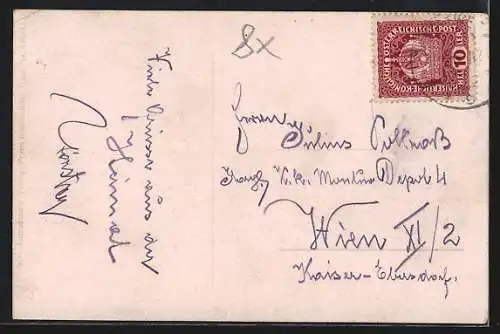 8x
KAISERLICHE KÖNIGLICHE ÖSTERREICHISCHE POST
10 HELLER 10
Viele Grüsse aus der
Heimat
Herrn
Julius Pollnaß
k.k. Montur Depot 4
Wien XI/2
Kaiser-Ebersdorf.